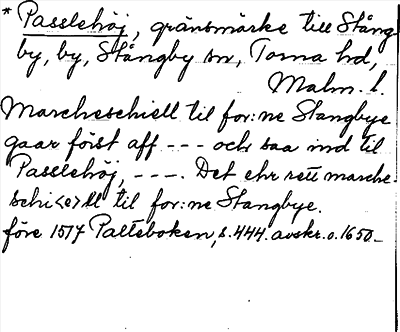 * Passlehöj, gränsmärke till Stång
by, by, Stångby sn, Torna hd,
Malm. l.
Marcheschiell til for:ne Stangbye
gaar först aff --- och saa ind til
Passlehöj, ---. Det ehr rett marche-
schi<e>ll til for:ne Stangbye.
före 1517 Palteboken, s. 444. avskr. o. 1650_